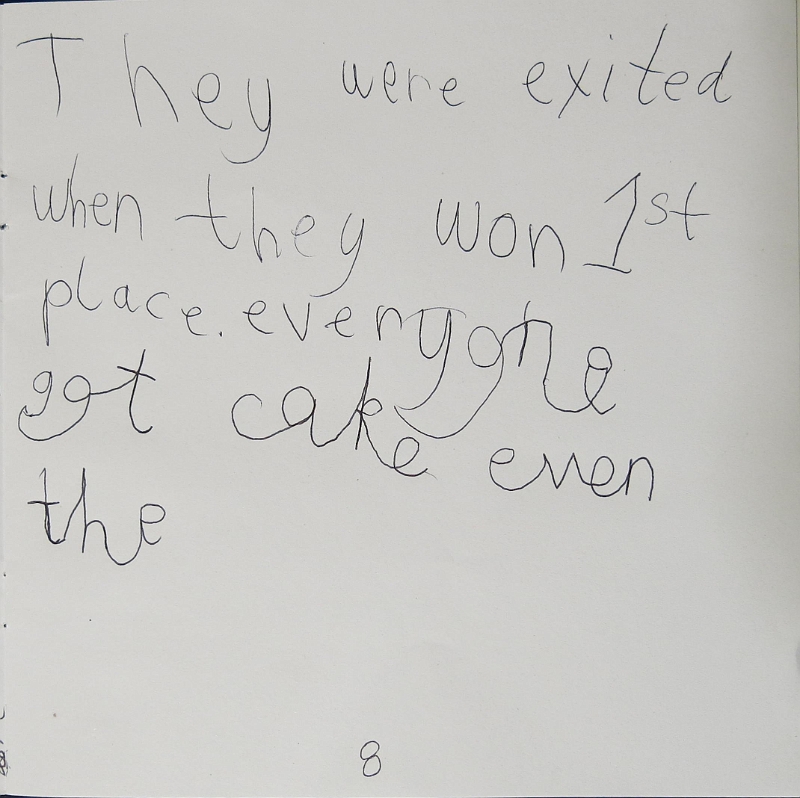 They were exited
when they won 1st
place. everyone
got cake even
the
8